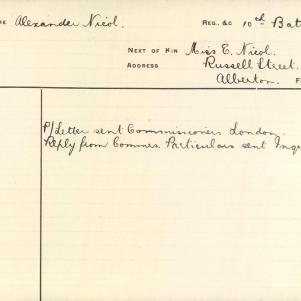 Alexander Nicol. Reg. &c 10th Bat
Next of Kin Miss E. Nicol.
Address Russell Street.
Alberton.
P/Letter sent Commissioners London.
Reply from Commrs. Particulars sent Inqu